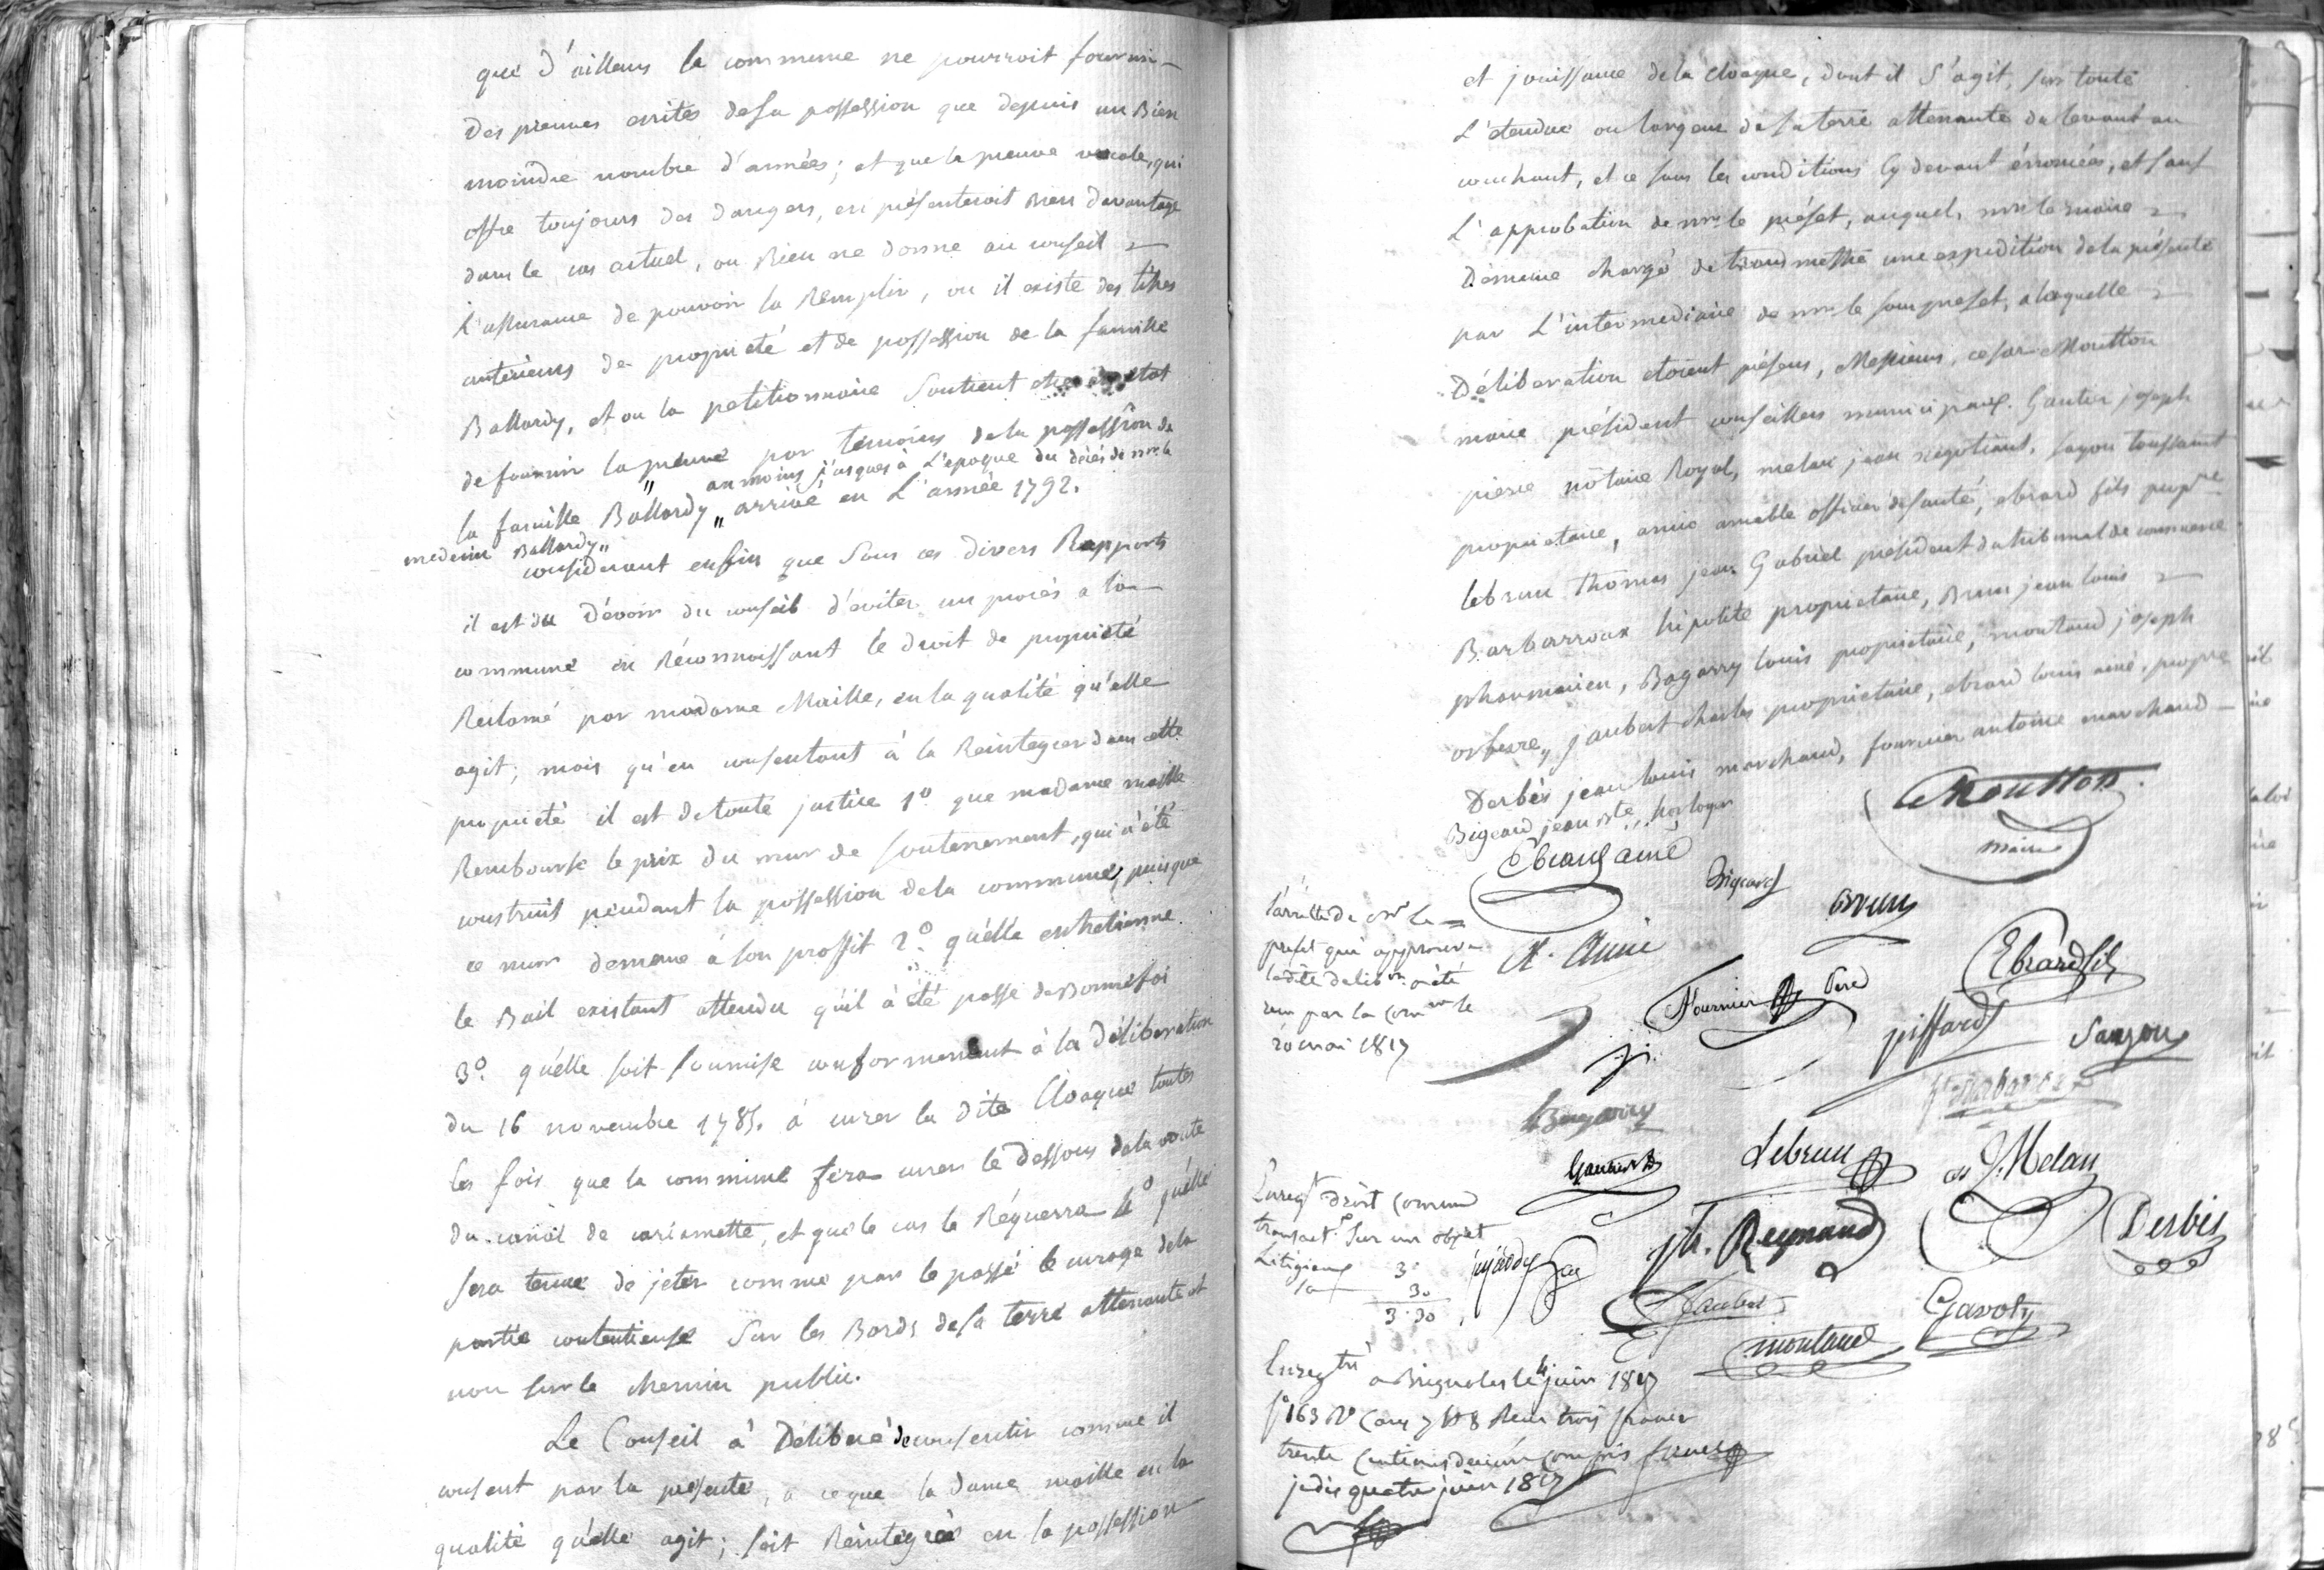 que d'ailleurs la commune ne pourroit fournir
des preuves ecrites de sa possession que depuis un Bien
moindre nombre d'années; et que la preuve vocale, qui
offre toujours des dangers, en présenteroit Bien davantage
dans le cas actuel, ou Rien ne donne au conseil
L'assurance de pouvoir la Remplir, ou il existe des titres
anterieurs de propriété et de possession de la famille
Ballardy, et ou la petitionnaire Soutient etre en etat
de fournir la preuve par temoins de la possession de
la famille Ballardy „ au moins jusques à L'epoque du décés de mr le
medecin Ballardy „ arrivé en L'année 1792.
considerant enfin que Sous ces divers Rapports
il est du Dévoir du conseil d'éviter un procès a la
commune en Réconnoissant le droit de propriété
Réclamé par madame Maille, en la qualité qu'elle
agit; mais qu'en consentant à la Reintegrer dans cette
propriété il est de toute justice 1º que madame maille
Rembourse le prix du mur de soutenement, qui a été
construit pendant la possession de la commune, puisque
ce mur demeure à son proffit 2º. qu'elle entretienne
le Bail existant attendu qu'il à été passé de Bonnefoi
3º. qu'elle soit soumise conformement à la Déliberation
du 16 novembre 1785. à curer la dite Cloaque toutes
les fois que la commune féra curer le dessous de la voute
du canal de cariamette, et que le cas le Réquerra 4º qu'elle
sera tenue de jeter comme par le passé le curage de la
partie contentieuse Sur les Bords de sa terre attenante et
non sur le chemin public.
Le Conseil à Déliberé de consentir comme il
consent par la présente, a ce que la Dame maille en la
qualité qu'elle agit; soit Réintégrée en la possession
et jouissance de la cloaque, dont il s'agit, sur toute
L'etendue ou largeur de sa terre attenante du levant au
couchant, et ce sous les conditions cy devant énoncées, et sauf
L'approbation de mr le préfet, auquel, mr le maire
Démeure chargé de transmettre une expedition de la présente
par L'intermediaire de mr le sous prefet, a laquelle
Déliberation etoient présens, Messieurs, cesar Moutton
maire président conseillers municipaux. Gautier joseph
pierre nôtaire Royal, melan jean négotiant, sayou toussaint
proprietaire, amic amable officier de santé, ebrard fils propre
lebrun thomas jean Gabriel président du tribunal de commerce
Barbarroux hipolite proprietaire, Brun jean louis
pharmacien, Bagarry louis proprietaire, montaud joseph
orfevre, jaubert charles proprietaire, ebrard louis ainé, propre
Derbès jean louis marchand, fournier antoine marchand
Bigeard jean bte, horloger
Moutton
maire
Ebrard ainé
Bigeard
Brun
L'arrêté de mr le
prefet qui approuve
ladite delibon a été
par la
20 mai 1817
A. Amic
Fournier Pere
Ebrard fils
piffard
Sayou
Bagarry
Gautier
Lebrun
J. Melan
Enregt Droit Commun
transact. Sur un objet
Litigieux 3"
30
3.30
jh. Reynaud
Derbès
Jaubert
Gavoty
montaud
Enregtré a Brignoles le 4 juin 1817
fº 163 Rº Case 7 Reçu trois francs
trente Centimes decime Compris
je dis quatre juin 1817